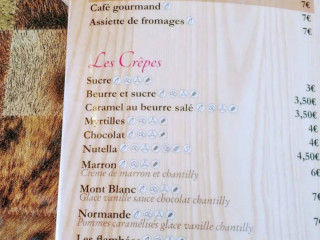 Café gourmand 7€
Assiette de fromages 7€
7€
Les Crêpes
Sucre 3€
Beurre et sucre 3,50€
Caramel au beurre salé 3,50€
Myrtilles 4€
Chocolat 4€
Nutella 4,50€
Marron 6€
Crème de marron et chantilly
Mont Blanc 7€
Glace vanille sauce chocolat chantilly
Normande 7€
Pommes caramélisées glace vanille chantilly
Les flambées